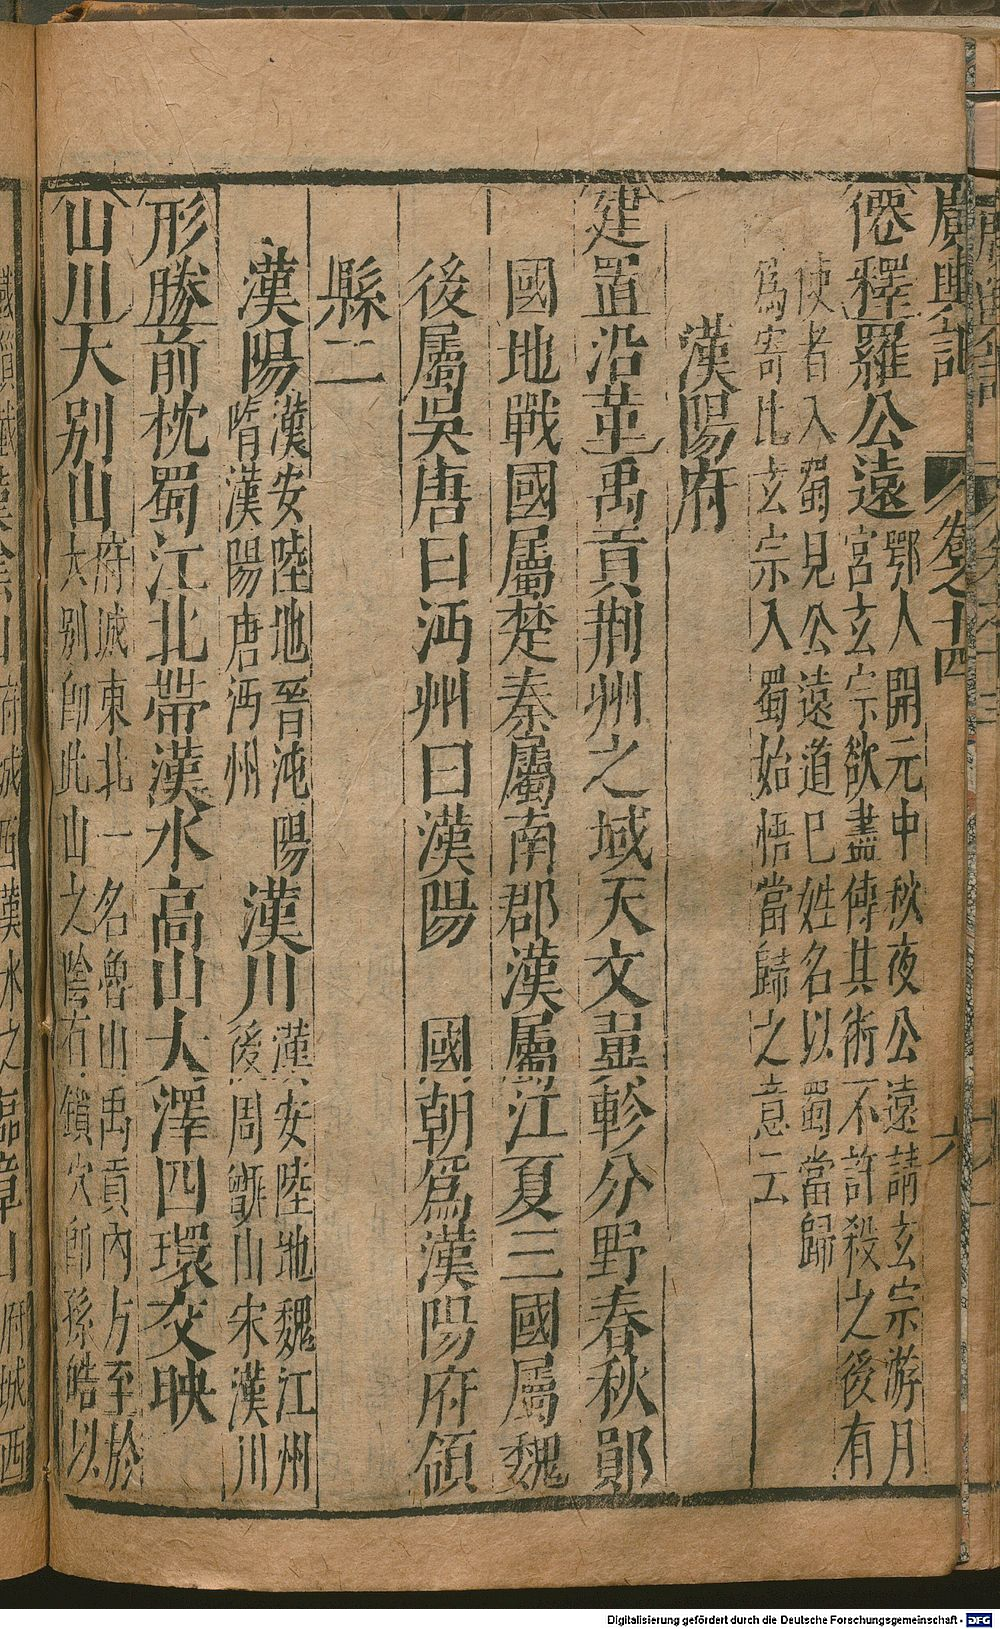 廣輿記 卷之十四 六
僊釋羅公遠鄂人開元中秋夜公遠請玄宗游月
宮玄宗欲盡傳其術不許殺之後有
使者入蜀見公遠道已姓名以蜀當歸
爲寄比玄宗入蜀始悟當歸之意云
漢陽府
建置沿革禹貢荆州之域天文翼軫分野春秋鄖
國地戰國屬楚秦屬南郡漢屬江夏三國屬魏
後屬吳唐曰沔州曰漢陽 國朝爲漢陽府領
縣二
漢陽漢安陸地晉沌陽
隋漢陽唐沔州
漢川漢安陸地魏江州
後周甑山宋漢川
形勝前枕蜀江北帶漢水高山大澤四環交映
山川大别山府城東北一名魯山禹貢內方至於
大别即此山之陰有鎖穴即孫皓以
Digitalisierung gefördert durch die Deutsche Forschungsgemeinschaft - DFG